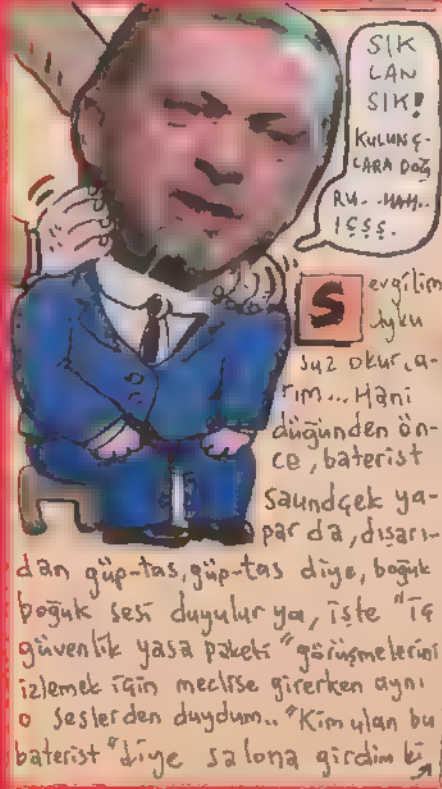 SIK
LAN
SIK!
KULUNÇ-
LARA DOĞ
RU...HAH..
IÇŞŞ.
Sevgilim
uyku
suz okurla-
rım... Hani
düğünden ön-
ce, baterist
saundçek ya-
par da, dışarı-
dan güp-tas, güp-tas diye, boğuk
boğuk sesi duyulur ya, işte "iç
güvenlik yasa paketi" görüşmelerini
izlemek için meclise girerken aynı
o seslerden duydum.. "Kim ulan bu
baterist" diye salona girdim ki